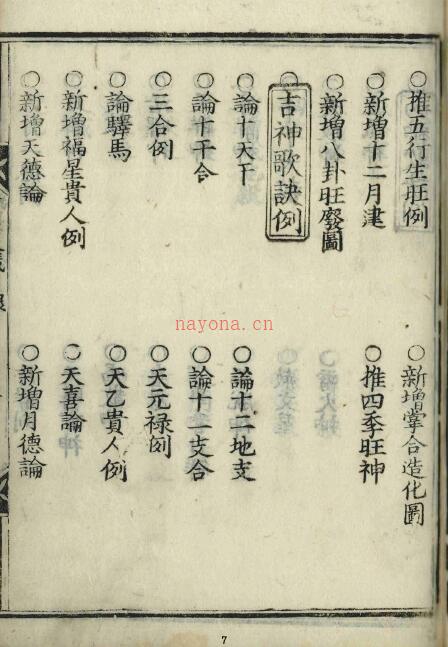 ○推五行生旺例
○新增掌合造化圖
○新增十二月建
○推四季旺神
○新增八卦旺廢圖
吉神歌訣例
○論十天干
○論十二地支
○論十干合
○論十二支合
○三合例
○天元禄例
○論驛馬
○天乙貴人例
○新增福星貴人例
○天喜論
○新增天德論
○新增月德論
nayona.cn
7